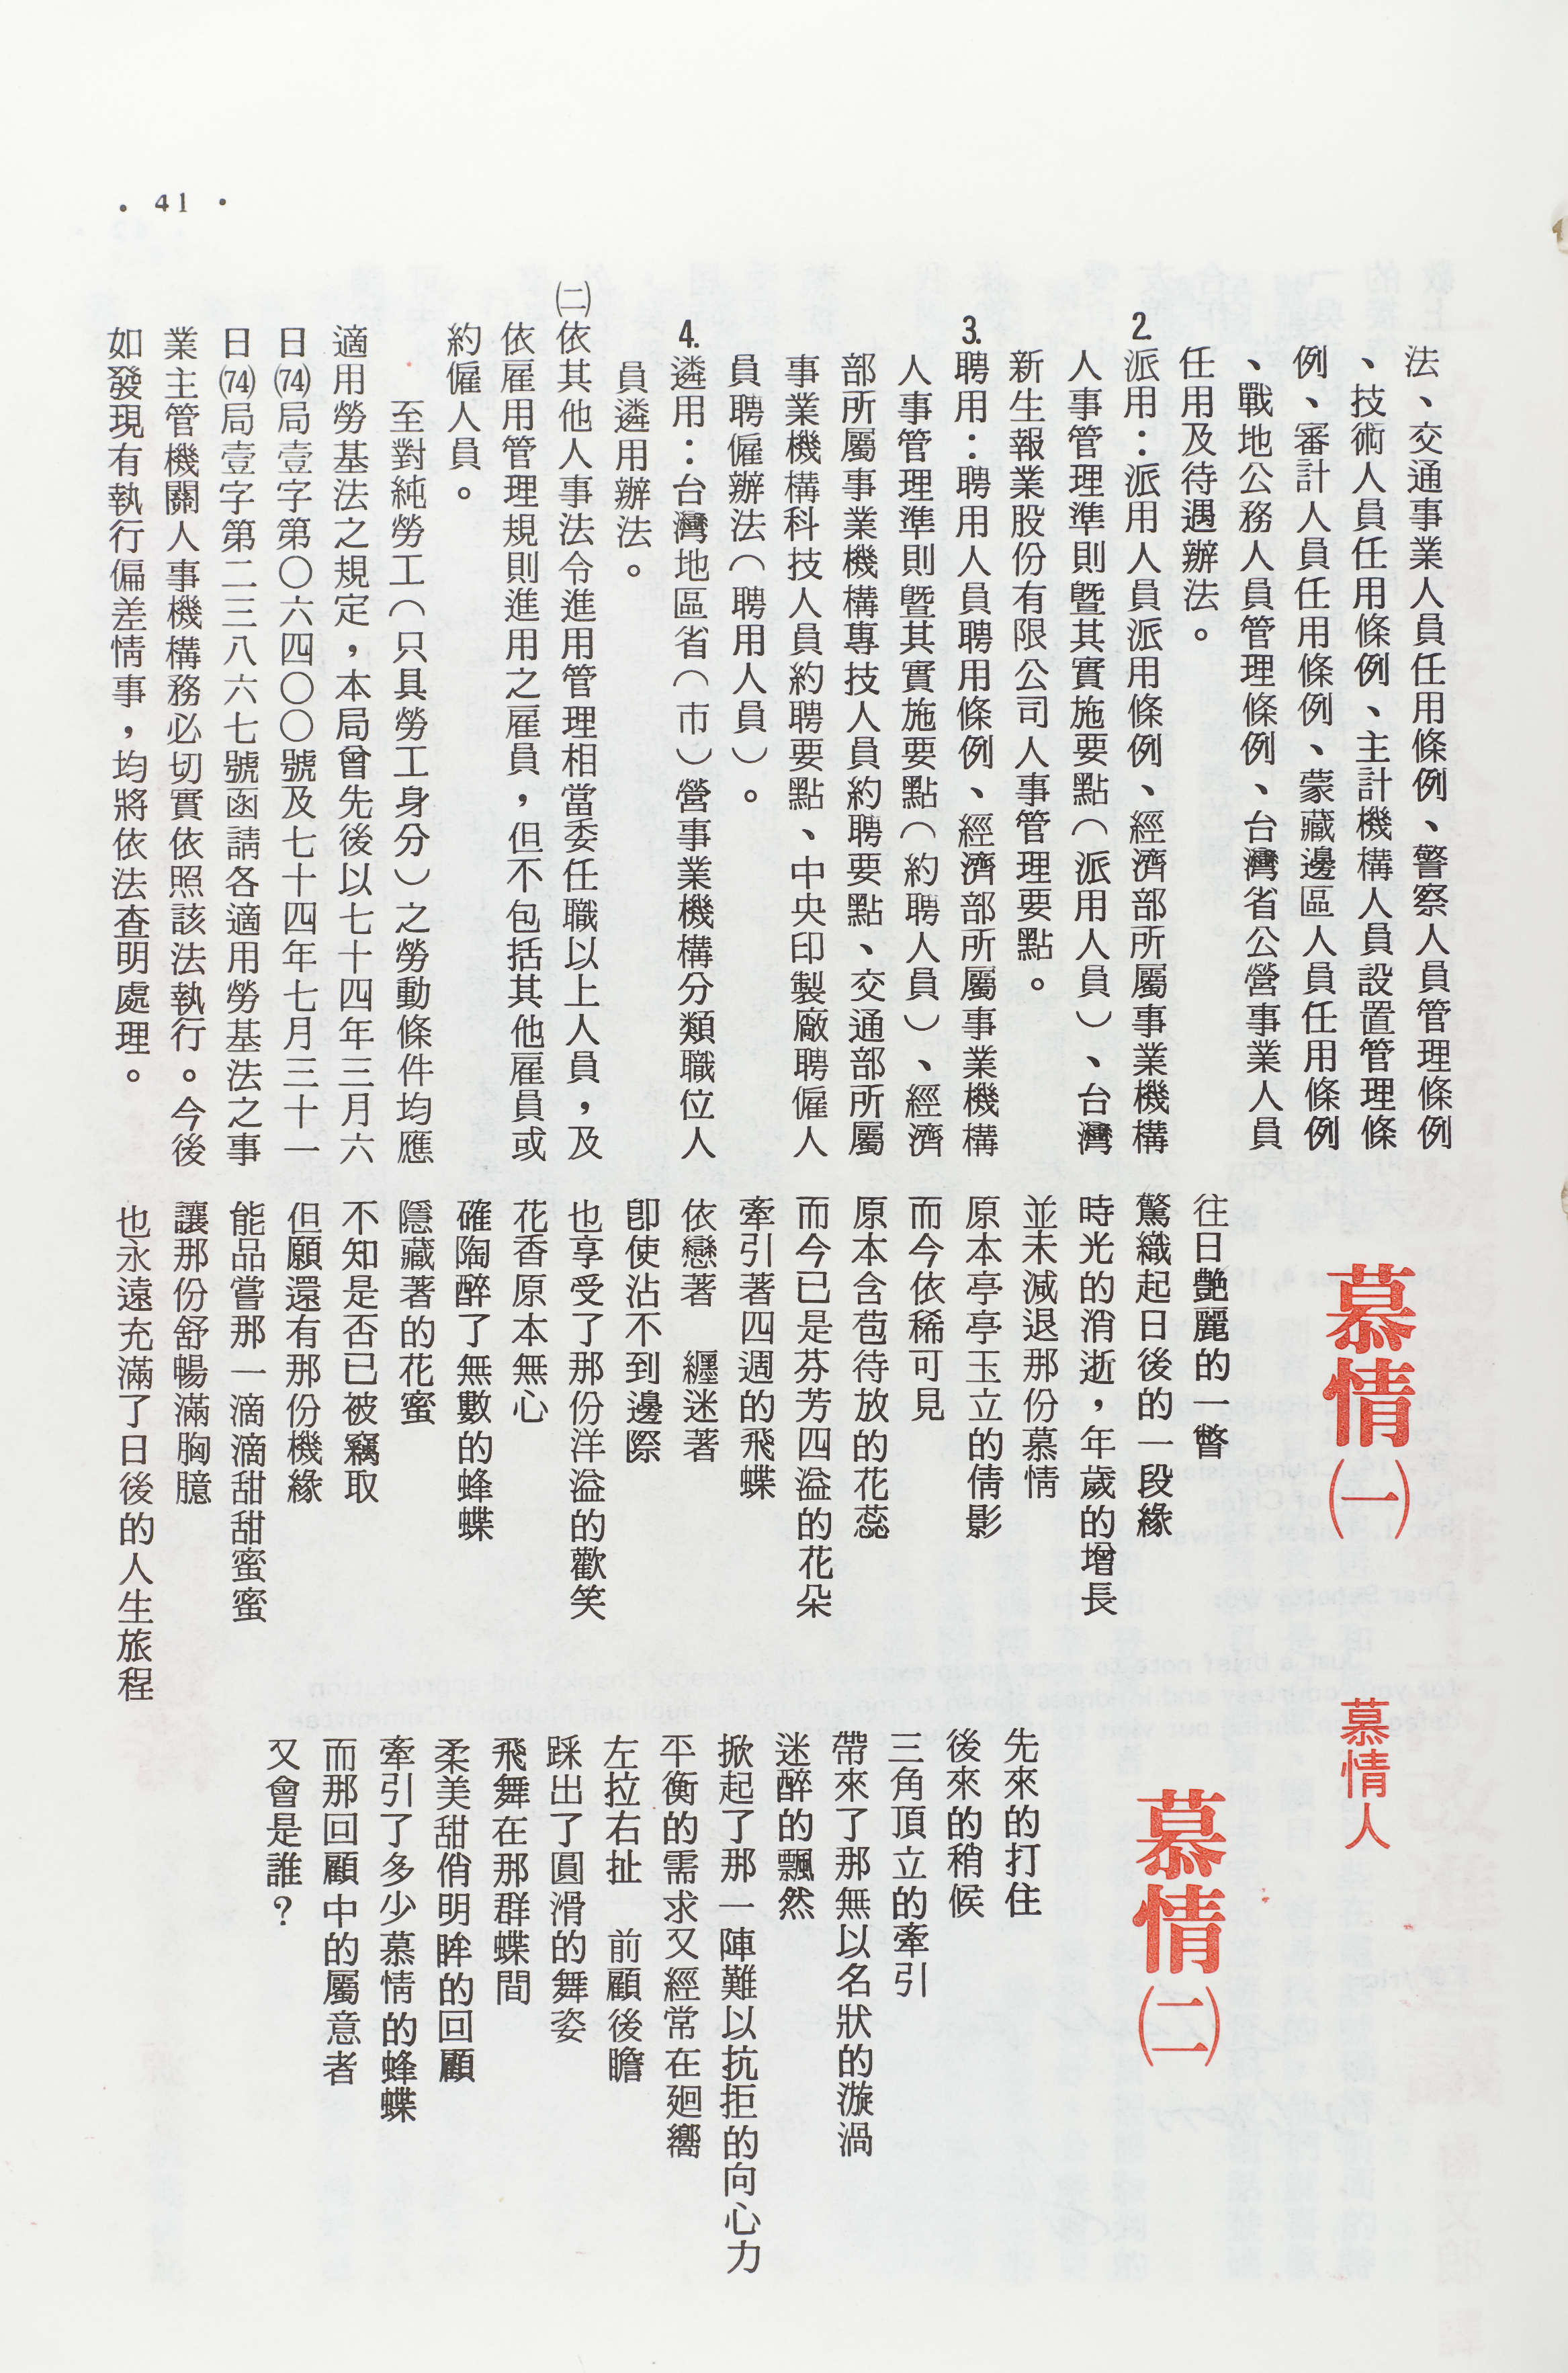 法、交通事業人員任用條例、警察人員管理條例
、技術人員任用條例、主計機構人員設置管理條
例、審計人員任用條例、蒙藏邊區人員任用條例
、戰地公務人員管理條例、台灣省公營事業人員
任用及待遇辦法。
2.派用：派用人員派用條例、經濟部所屬事業機構
人事管理準則暨其實施要點（派用人員）、台灣
新生報業股份有限公司人事管理要點。
3.聘用：聘用人員聘用條例、經濟部所屬事業機構
人事管理準則暨其實施要點（約聘人員）、經濟
部所屬事業機構專技人員約聘要點、交通部所屬
事業機構科技人員約聘要點、中央印製廠聘僱人
員聘僱辦法（聘用人員）。
4.遴用：台灣地區省（市）營事業機構分類職位人
員遴用辦法。
㈡依其他人事法令進用管理相當委任職以上人員，及
依雇用管理規則進用之雇員，但不包括其他雇員或
約僱人員。
至對純勞工（只具勞工身分）之勞動條件均應
適用勞基法之規定，本局曾先後以七十四年三月六
日(74)局壹字第〇六四〇〇號及七十四年七月三十一
日(74)局壹字第二三八六七號函請各適用勞基法之事
業主管機關人事機構務必切實依照該法執行。今後
如發現有執行偏差情事，均將依法查明處理。
慕情㈠
慕情人
往日艷麗的一瞥
驚織起日後的一段緣
時光的消逝，年歲的增長
並未減退那份慕情
原本亭亭玉立的倩影
而今依稀可見
原本含苞待放的花蕊
而今已是芬芳四溢的花朵
牽引著四週的飛蝶
依戀著　纏迷著
卽使沾不到邊際
也享受了那份洋溢的歡笑
花香原本無心
確陶醉了無數的蜂蝶
隱藏著的花蜜
不知是否已被竊取
但願還有那份機緣
能品嘗那一滴滴甜甜蜜蜜
讓那份舒暢滿胸臆
也永遠充滿了日後的人生旅程
慕情㈡
先來的打住
後來的稍候
三角頂立的牽引
帶來了那無以名狀的漩渦
迷醉的飄然
掀起了那一陣難以抗拒的向心力
平衡的需求又經常在廻嚮
左拉右扯　前顧後瞻
踩出了圓滑的舞姿
飛舞在那群蝶間
柔美甜俏明眸的回顧
牽引了多少慕情的蜂蝶
而那回顧中的屬意者
又會是誰？
• 41 •